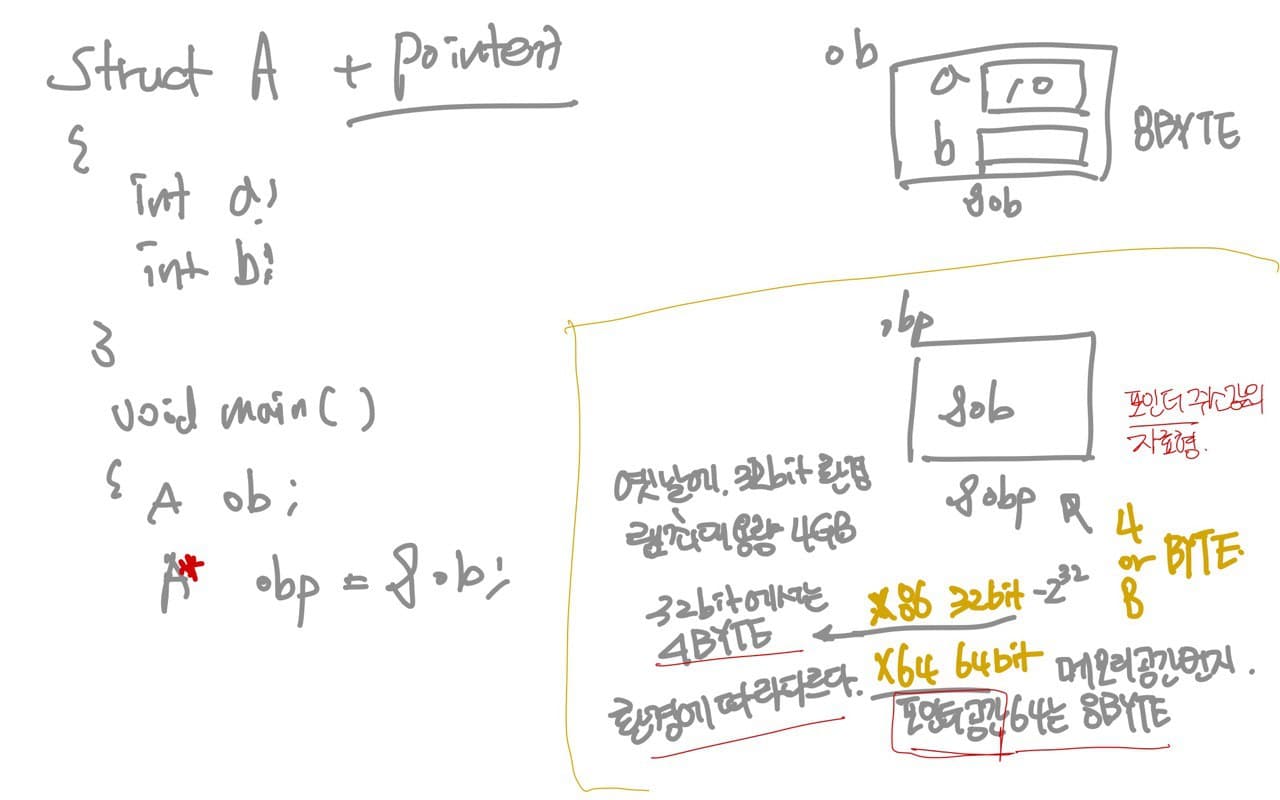 Struct A + pointer
{
int a;
int b;
}
void main()
{ A ob;
A* obp = &ob;
ob
a 10
b
8BYTE
&ob
obp
&ob
&obp
포인터 주소값의
자료형.
4
or BYTE.
8
옛날에. 32bit 환경
램 최대 용량 4GB
32bit에서는
4BYTE
X86 32bit - 2^32
X64 64bit 메모리공간번지.
환경에 따라 다르다.
포인터공간 64는 8BYTE